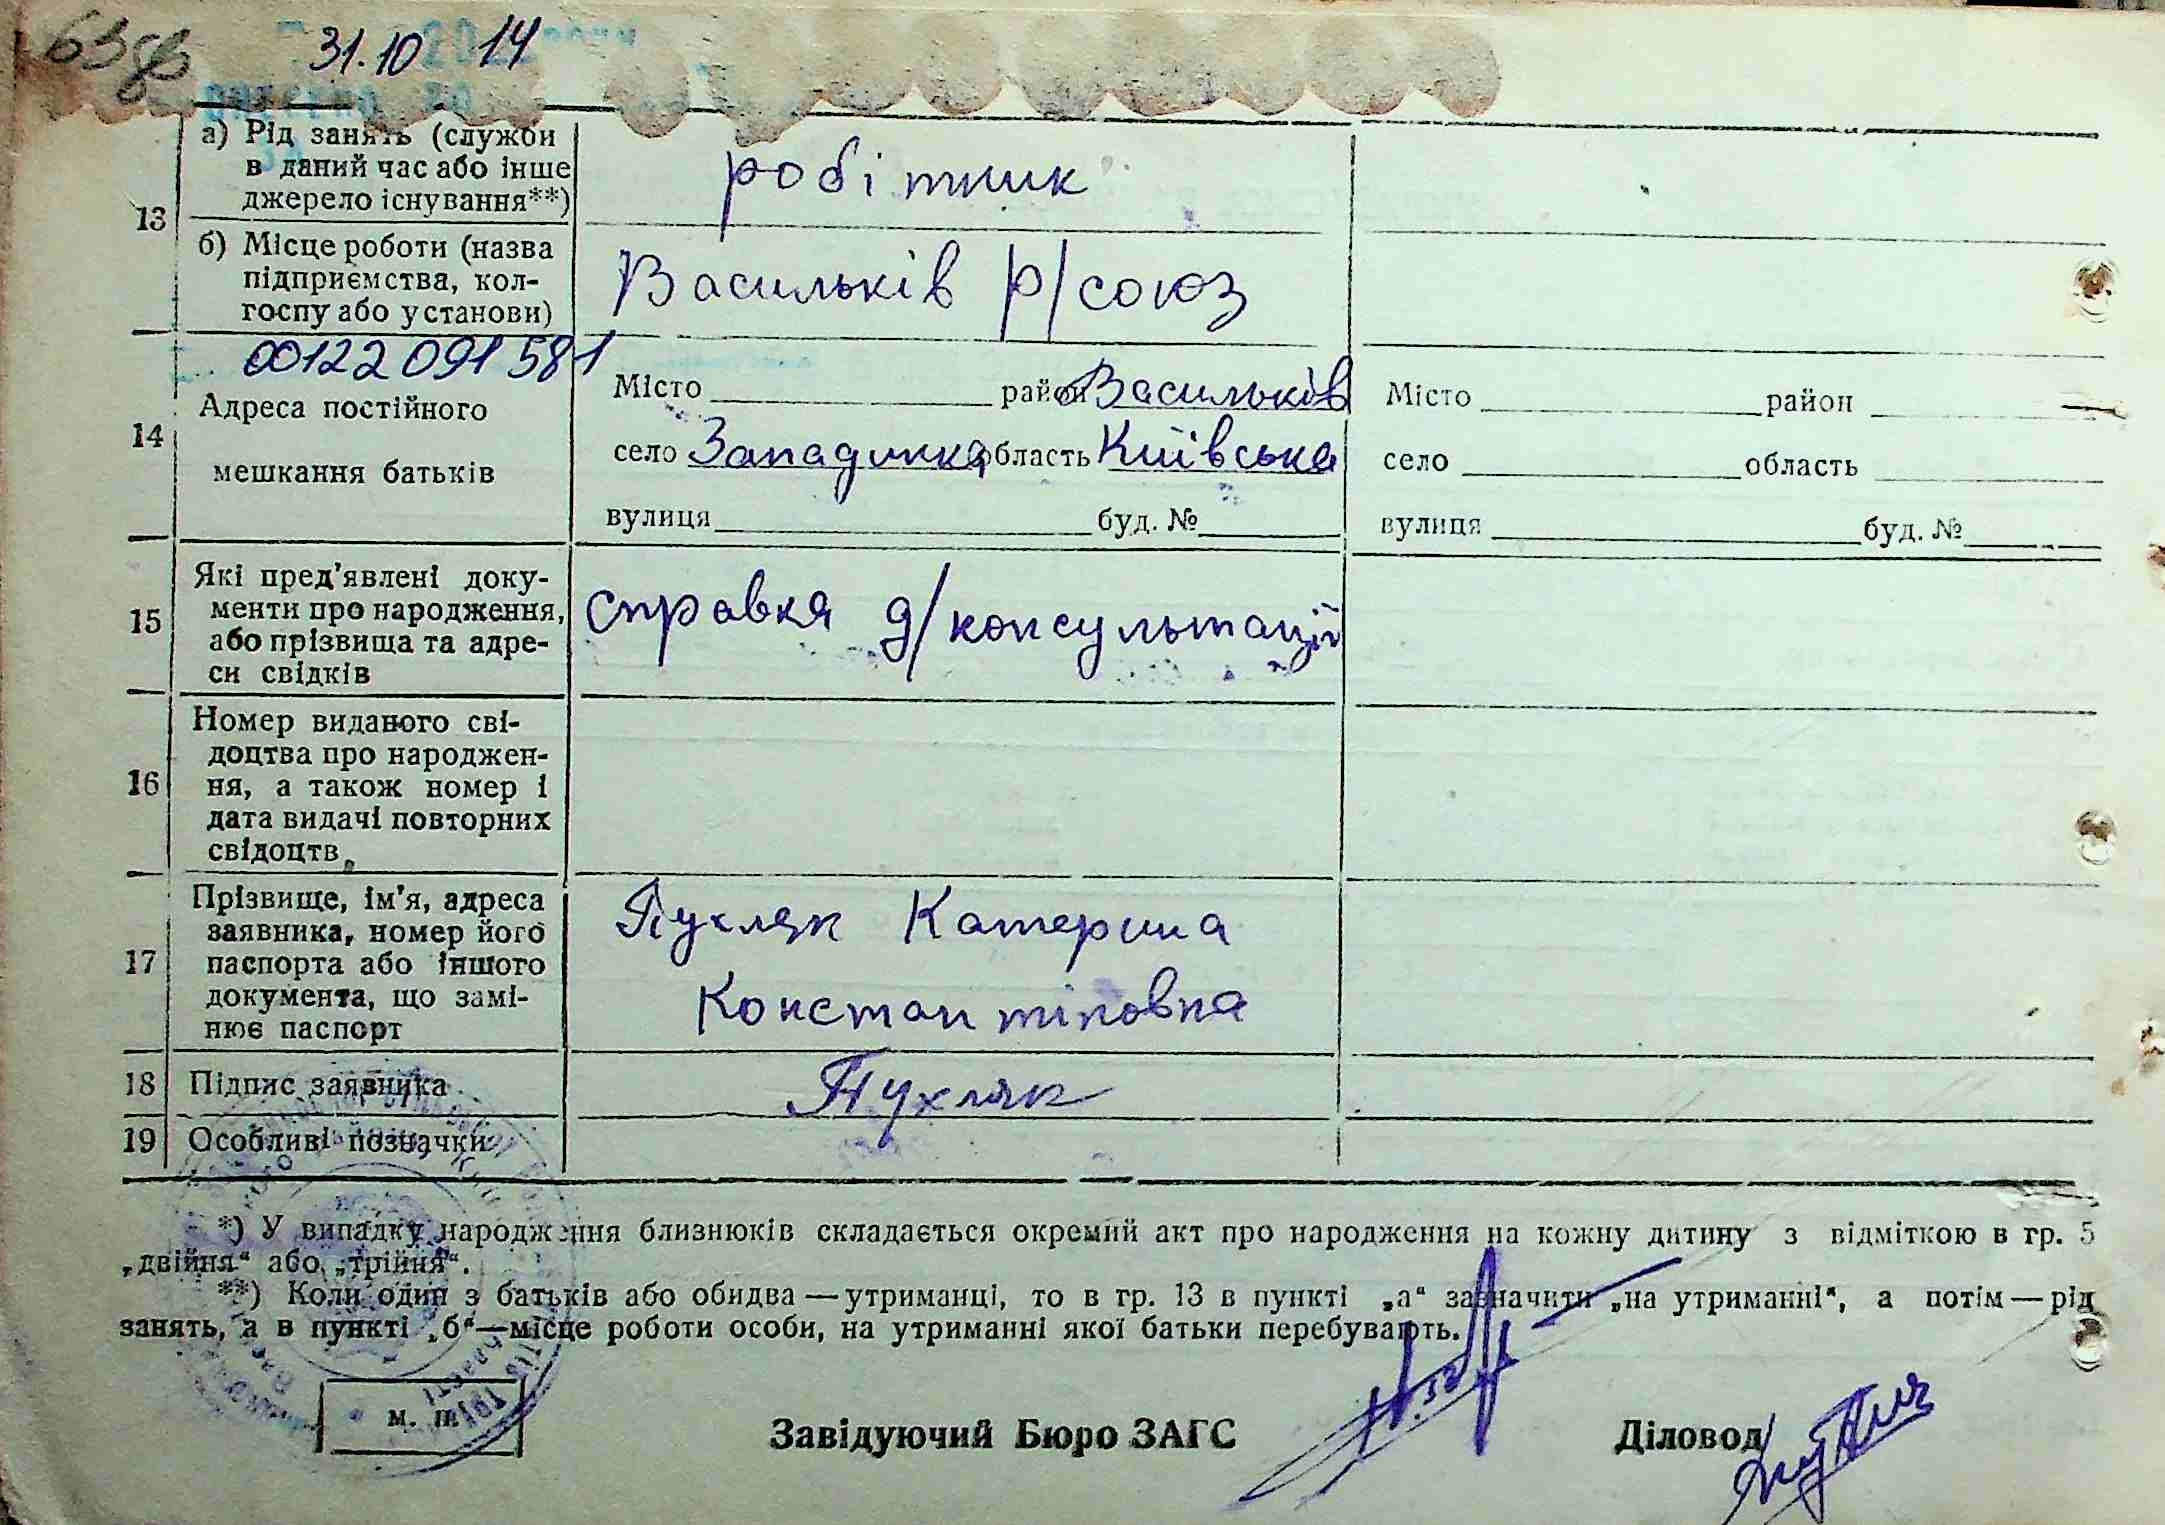 63 зв
31.10 14
13
а) Рід занять (служби
в даний час або інше
джерело існування**)
робітник
б) Місце роботи (назва
підприємства, кол-
госпу або установи)
Васильків р/союз
14
00122091581
Адреса постійного
мешкання батьків
Місто район Васильків
село Западинка область Київська
вулиця буд. №
Місто район
село область
вулиця буд. №
15
Які пред'явлені доку-
менти про народження,
або прізвища та адре-
си свідків
справка д/консультації
16
Номер виданого сві-
доцтва про народжен-
ня, а також номер і
дата видачі повторних
свідоцтв
17
Прізвище, ім'я, адреса
заявника, номер його
паспорта або іншого
документа, що замі-
нює паспорт
Пухляк Катерина
Константіновна
18 Підпис заявника
Пухляк
19 Особливі позначки
*) У випадку народження близнюків складається окремий акт про народження на кожну дитину з відміткою в гр. 5
„двійня“ або „трійня“.
**) Коли один з батьків або обидва — утриманці, то в гр. 13 в пункті „а“ зазначити „на утриманні“, а потім — рід
занять, а в пункті „б“—місце роботи особи, на утриманні якої батьки перебувають.
м. п.
Завідуючий Бюро ЗАГС
Діловод